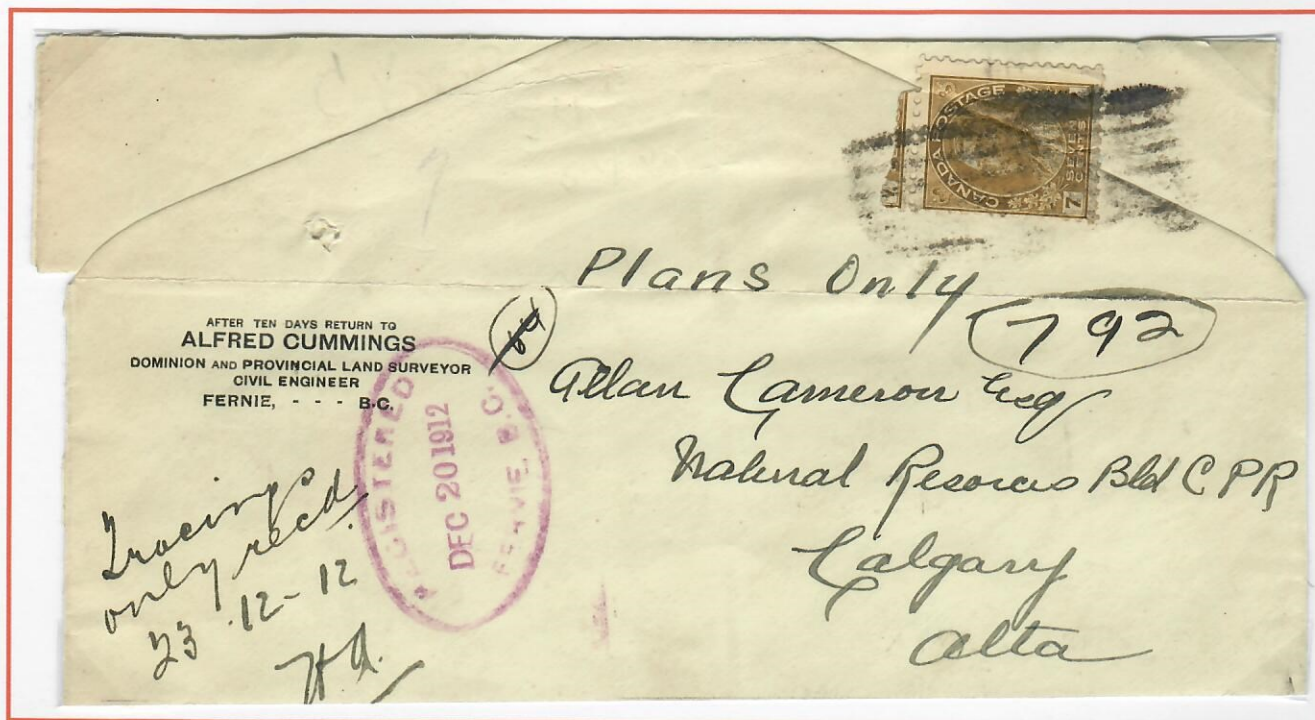 CANADA POSTAGE
7 SEVEN CENTS
Plans Only
792
64
AFTER TEN DAYS RETURN TO
ALFRED CUMMINGS
DOMINION AND PROVINCIAL LAND SURVEYOR
CIVIL ENGINEER
FERNIE, - - - B.C.
REGISTERED
DEC 20 1912
FERNIE, B.C.
Allan Cameron Esq
Natural Resorces Bld C P R
Calgary
Alta
Tracings
only rec'd
23-12-12